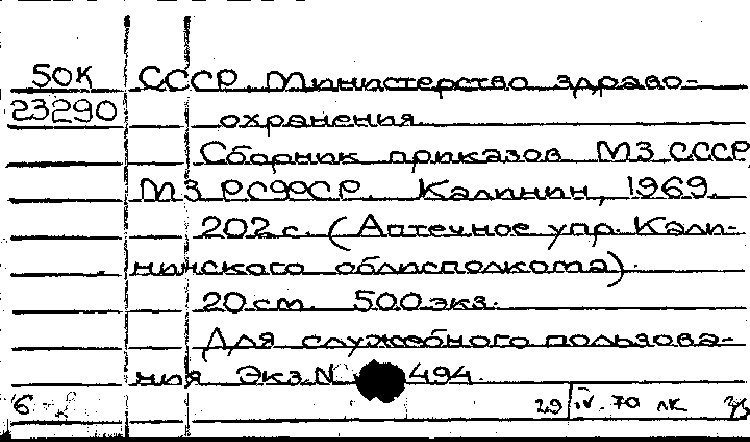 50К СССР. Министерство здраво-
23290 охранения.
Сборник приказов МЗ СССР,
МЗ РСФСР. Калинин, 1969.
202 с. (Аптечное упр. Кали-
нинского облисполкома).
20 см. 500 экз.
Для служебного пользова-
ния Экз. N 494.
6 29 IV. 70 лк